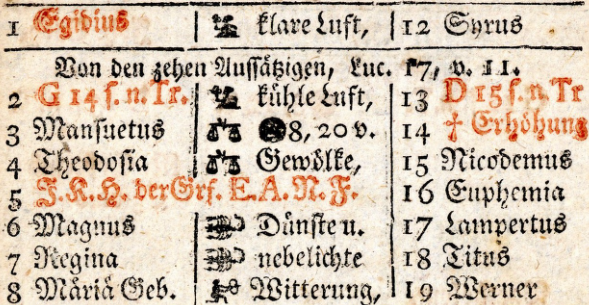 1 Egidius klare Luft, 12 Syrus
Von den zehen Aussätzigen, Luc. 17, v. 11.
2 G 14 s. n. Tr. kühle Luft, 13 D 15 s. n. Tr
3 Mansuetus 8, 20 v. 14 † Erhöhung
4 Theodosia Gewölke, 15 Nicodemus
5 J. K. H. der Grf. E. A. N. F. 16 Euphemia
6 Magnus Dünste u. 17 Lampertus
7 Regina nebelichte 18 Titus
8 Mariä Geb. Witterung, 19 Werner